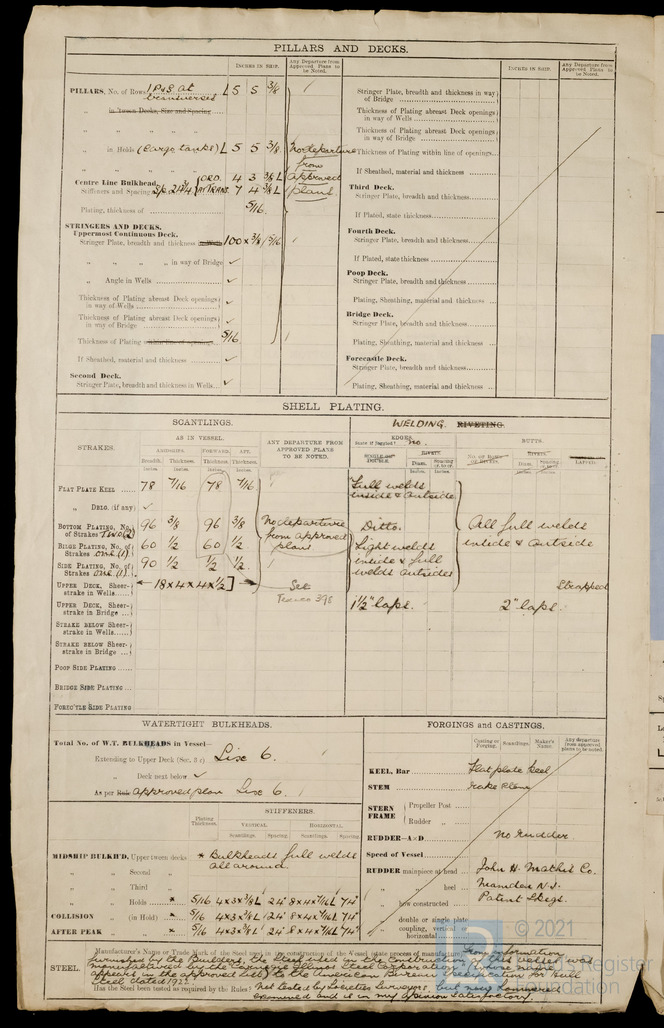 PILLARS AND DECKS.
INCHES IN SHIP.
Any Departure from Approved Plans to be Noted.
INCHES IN SHIP.
Any Departure from Approved Plans to be Noted.
PILLARS, No. of Rows 1 P&S at transverses L 5 5 3/8
„ in 'tween Decks, Size and Spacing
„ „ „ „
„ in Holds (cargo tanks) L 5 5 3/8
No departure from approved plans
„ „ „ ORD. 4 3 3/8 L
Centre Line Bulkhead.
Stiffeners and Spacing Sp. 24 3/4 AT TRANS. 7 4 3/8 L
Plating, thickness of 5/16
STRINGERS AND DECKS.
Uppermost Continuous Deck.
Stringer Plate, breadth and thickness 100 x 3/8 / 5/16
„ „ „ in way of Bridge ✓
„ Angle in Wells ✓
Thickness of Plating abreast Deck openings in way of Wells ✓
Thickness of Plating abreast Deck openings in way of Bridge ✓
Thickness of Plating within line of openings 5/16
If Sheathed, material and thickness ✓
Second Deck.
Stringer Plate, breadth and thickness in Wells ✓
Stringer Plate, breadth and thickness in way of Bridge
Thickness of Plating abreast Deck openings in way of Wells
Thickness of Plating abreast Deck openings in way of Bridge
Thickness of Plating within line of openings
If Sheathed, material and thickness
Third Deck.
Stringer Plate, breadth and thickness
If Plated, state thickness
Fourth Deck.
Stringer Plate, breadth and thickness
If Plated, state thickness
Poop Deck.
Stringer Plate, breadth and thickness
Plating, Sheathing, material and thickness
Bridge Deck.
Stringer Plate, breadth and thickness
Plating, Sheathing, material and thickness
Forecastle Deck.
Stringer Plate, breadth and thickness
Plating, Sheathing, material and thickness
SHELL PLATING.
SCANTLINGS.
WELDING. RIVETING.
STRAKES.
AS IN VESSEL.
ANY DEPARTURE FROM APPROVED PLANS TO BE NOTED.
EDGES.
State if Joggled? no.
BUTTS.
AMIDSHIPS. FORWARD. AFT.
Breadth. Thickness. Thickness. Thickness.
Inches. Inches. Inches. Inches.
SINGLE OR DOUBLE.
RIVETS.
Diam. Spacing cr. to cr.
Inches. Inches.
NO. OF ROWS OF RIVETS.
RIVETS.
Diam. Spacing cr. to cr.
Inches. Inches.
LAPPED.
FLAT PLATE KEEL 78 7/16 78 7/16
Full welds inside & outside
„ DBLG. (if any) ✓
BOTTOM PLATING, No. of Strakes Two (2) 96 3/8 96 3/8
No departure from approved plans
Ditto.
All full welds inside & outside
BILGE PLATING, No. of Strakes One (1) 60 1/2 60 1/2
Light welds inside & full welds outsides
SIDE PLATING, No. of Strakes One (1) 90 1/2 1/2 1/2
UPPER DECK, Sheerstrake in Wells 18 x 4 x 4 x 1/2 ]
See
Strapped
UPPER DECK, Sheerstrake in Bridge
1 1/2" laps. 2" laps.
STRAKE BELOW Sheerstrake in Wells
STRAKE BELOW Sheerstrake in Bridge
POOP SIDE PLATING
BRIDGE SIDE PLATING
FORECTLE SIDE PLATING
WATERTIGHT BULKHEADS.
Total No. of W.T. BULKHEADS in Vessel—
Extending to Upper Deck (Sec. 3 c) Six 6.
„ Deck next below ✓
As per Rule approved plan Six 6.
STIFFENERS.
Plating Thickness.
VERTICAL. HORIZONTAL.
Scantlings. Spacing. Scantlings. Spacing.
MIDSHIP BULKH'D, Upper tween decks * Bulkheads full welds all around.
„ „ Second „
„ „ Third „
„ „ Holds * 5/16 4x3x3/8 L 24" 8x4x7/16 L 74"
COLLISION „ (in Hold) * 5/16 4x3x3/8 L 24" 8x4x7/16 L 74"
AFTER PEAK „ „ * 5/16 4x3x3/8 L 24" 8x4x7/16 L 74"
FORGINGS and CASTINGS.
Casting or Forging. Scantlings. Maker's Name. Any departure from approved plans to be noted.
KEEL, Bar Flat plate Keel
STEM
STERN FRAME { Propeller Post
Rudder „
RUDDER—A×D No rudder
Speed of Vessel
RUDDER mainpiece at head John H. Mathis Co.
„ „ heel Camden N.J.
„ how constructed Patent Skegs.
„ double or single plate
„ coupling, vertical or horizontal
STEEL.
Manufacturer's Name or Trade Mark of the Steel used in the construction of the Vessel (state process of manufacture) From information
furnished by the Builders, the Steel used in the construction of this vessel was
manufactured by the Carnegie Illinois Steel Corporation (whose name
appears in the approved list) to the American Bureau Specification for Hull
Steel dated
Has the Steel been tested as required by the Rules? Not tested by Societies Surveyors, but now
examined and is in my opinion satisfactory.
© 2021
Register
Foundation